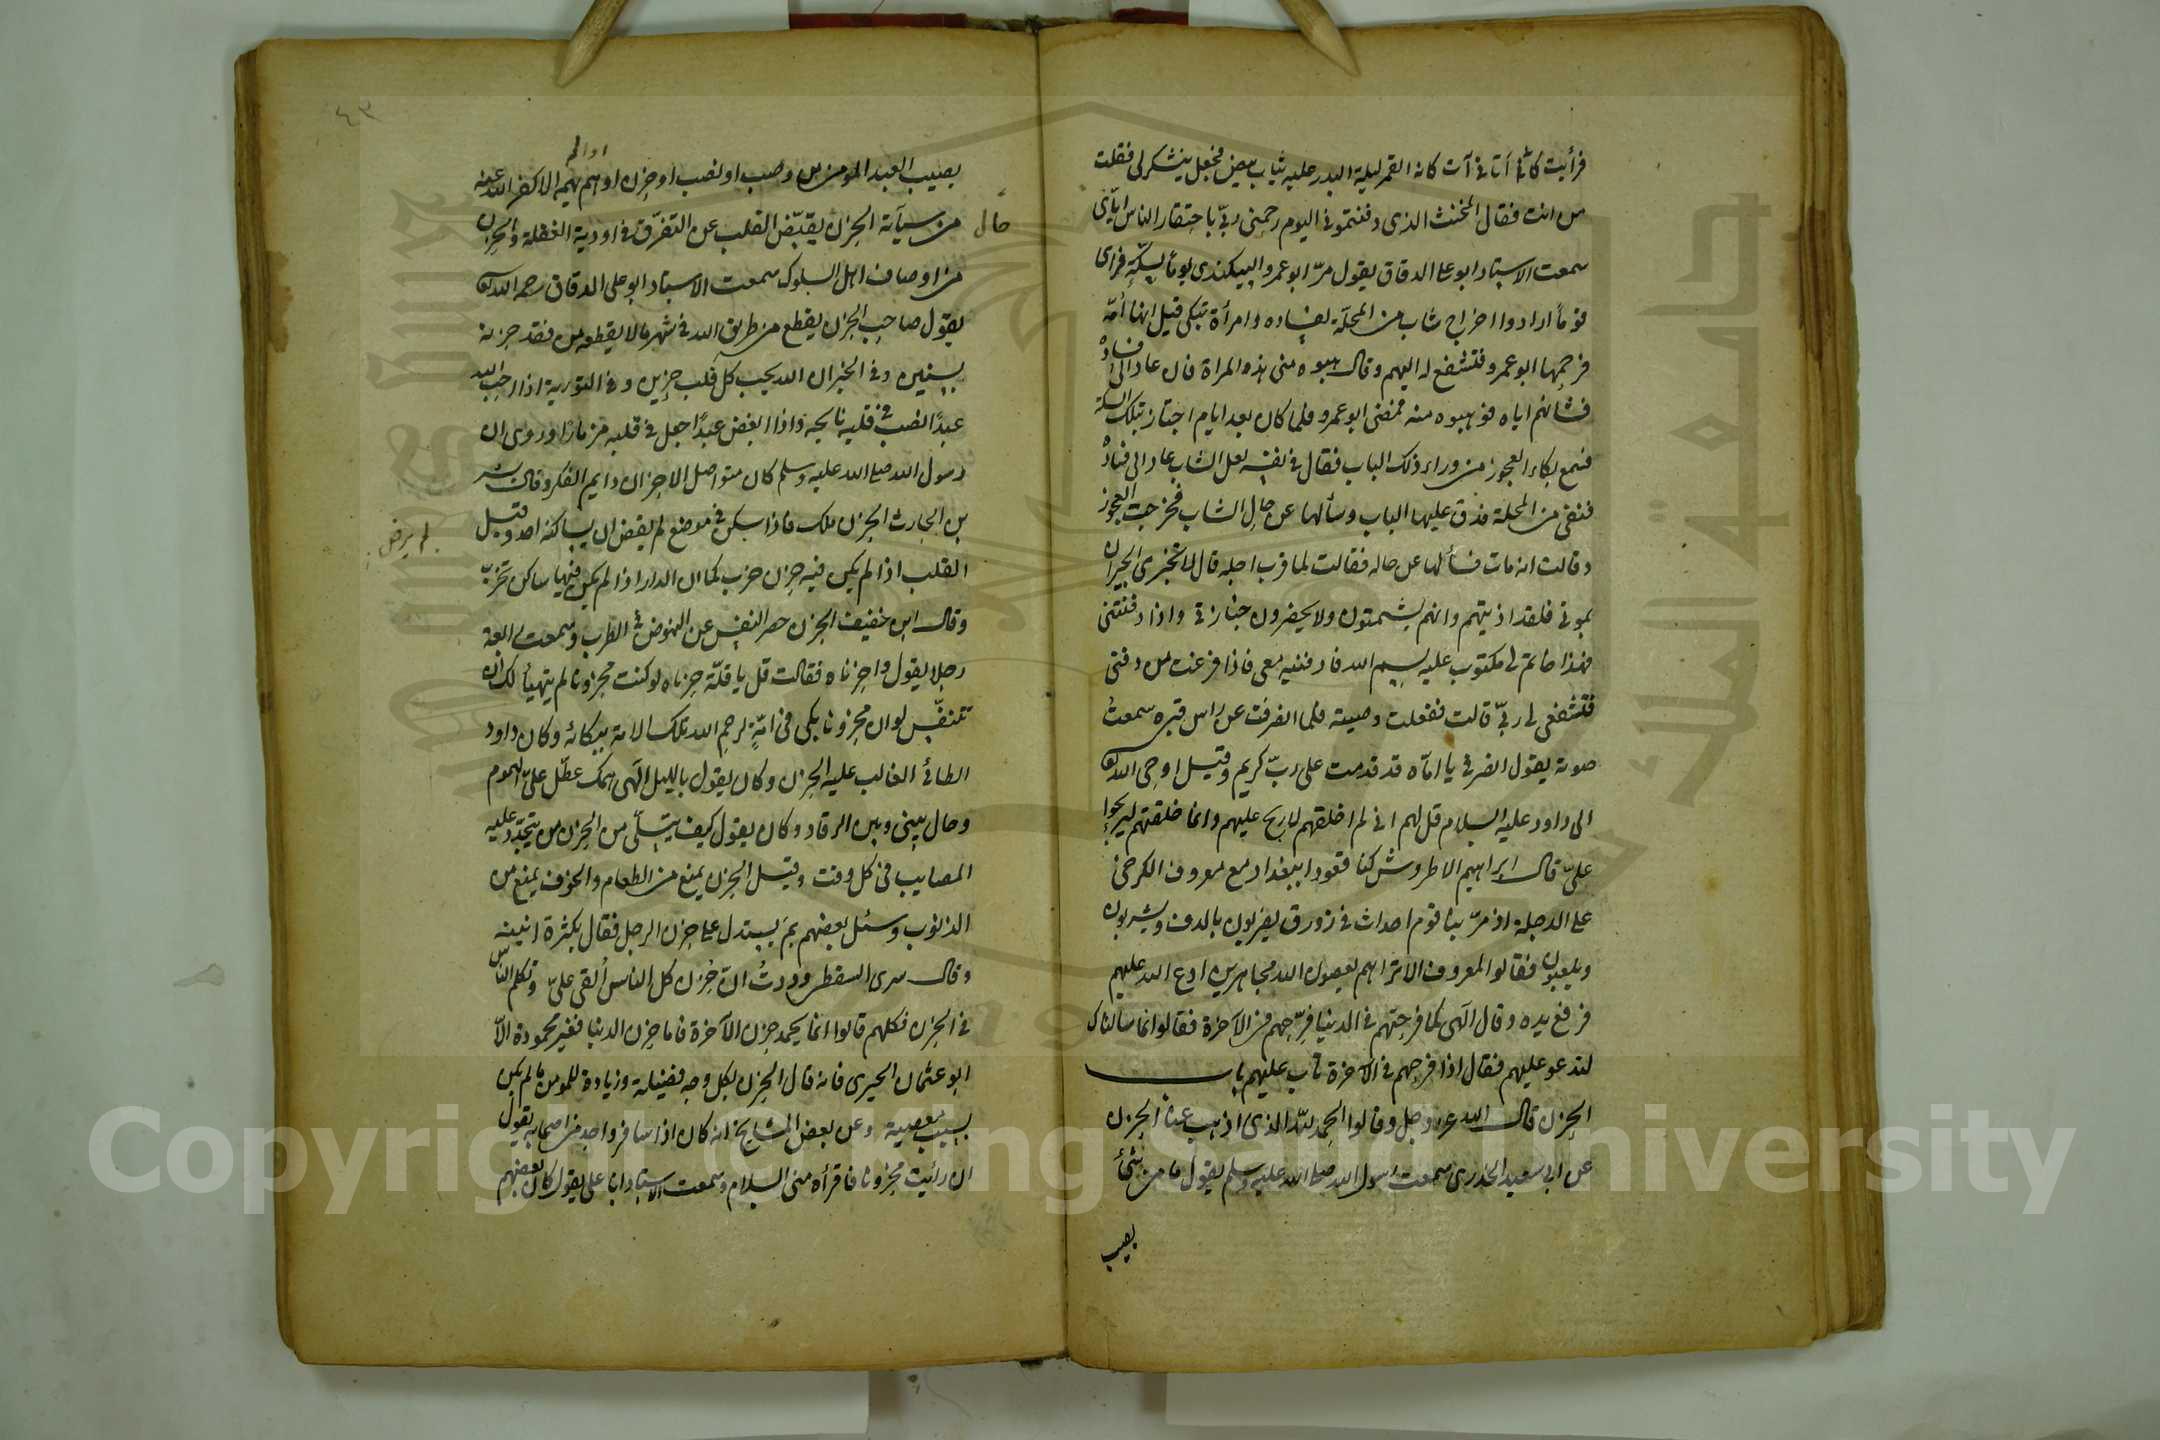 فرأيت كانّي أتاني آت كانه القمر ليلة البدر عليه ثياب بيض فجعل يتشكر لي فقلت
من انت فقال المخنث الذي دفنتموني اليوم رحمني ربي باحتقار الناس ايّاي
سمعت الاستاد ابو علي الدقاق يقول مرّ ابو عمرو البيكندي يوماً بسكّة فرأى
قوماً ارادوا اخراج شاب من المحلّة لفساده وامرأة تبكي قيل انها أمّه
فرحمها ابو عمرو فتشفع له اليهم وقال هبوه مني هذه المراة فان عاد الى فساده
فشانكم اياه فوهبوه منه فمضى ابو عمرو فلما كان بعد ايام اجتاز بتلك السكة
فسمع بكاء العجوز من وراء ذلك الباب فقال في نفسه لعل الشاب عاد الى فساده
فنفي من المحلة فدق عليها الباب وسألها عن حال الشاب فخرجت العجوز
وقالت انه مات فسألها عن حاله فقالت لما قرب اجله قال لا تخبري الجيران
بموتي فلقد اذيتهم وانهم يشمتون ولا يحضرون جنازتي واذا دفنتني
فهذا خاتم لي مكتوب عليه بسم الله فادفنيه معي فاذا فرغت من دفني
فتشفعي لي ربّي قالت ففعلت وصيته فلما انصرفت عن راس قبره سمعت
صوته يقول انصرفي يا امّاه قد قدمت على ربّ كريم وقيل اوحى الله تعالى
الى داود عليه السلام قل لهم اني لم اخلقهم لاربح عليهم وانما خلقتهم ليربحوا
عليّ قال ابراهيم الاطروش كنا قعودا ببغداد مع معروف الكرخي
على الدجلة اذ مرّ بنا قوم احداث في زورق يضربون بالدف ويشربون
ويلعبون فقالوا لمعروف الا تراهم يعصون الله مجاهرين ادع الله عليهم
فرفع يده وقال الهي كما فرحتهم في الدنيا فرّحهم في الآخرة فقالوا انما سالناك
لتدعو عليهم فقال اذا فرحهم في الآخرة تاب عليهم باب
الحزن قال الله عز وجل وقالوا الحمد لله الذي اذهب عنا الحزن
عن ابي سعيد الخدري سمعت رسول الله صلى الله عليه وسلم يقول ما من شئ
يصيب
٤٣
او الم
يصيب العبد المومن من وصب او نصب او حزن او هم يهمه الا كفر الله عنه
من سيآته الحزن يقبّض القلب عن التفرّق في اودية الغفلة والحزن
حال
من اوصاف اهل السلوك سمعت الاستاد ابو علي الدقاق رحمه الله تعالى
يقول صاحب الحزن يقطع من طريق الله في شهر مالا يقطعه من فقد حزنه
بسنين وفي الخبر ان الله يحب كل قلب حزين وفي التورية اذا احب الله
عبدًا نصب في قلبه نايحه واذا ابغض عبدًا جعل في قلبه مزمارًا وروى ان
رسول الله صلى الله عليه وسلم كان متواصل الاحزان دايم الفكر وقال بشر
بن الحارث الحزن ملك فاذا سكن في موضع لم يقض ان يساكنه احد وقيل
لم يرض
القلب اذا لم يكن فيه حزن خرب كما ان الدار اذا لم يكن فيها ساكن تخرب
وقال ابن خفيف الحزن حصر النفس عن النهوض في الطرب وسمعت رابعة
رجلا يقول واحزناه فقالت قل يا قلّة حزناه لو كنت محزونا لم يتهيأ لك ان
تتنفّس لو ان محزونا بكى في امّةٍ لرحم الله تلك الامة ببكائه وكان داود
الطائي الغالب عليه الحزن وكان يقول بالليل الهي همك عطّل عليّ الهموم
وحال بيني وبين الرقاد وكان يقول كيف يتسلّى من الحزن من يتجدّد عليه
المصايب في كل وقت وقيل الحزن يمنع من الطعام والخوف يمنع من
الذنوب وسئل بعضهم بم يستدل على حزن الرجل فقال بكثرة انينه
وقال سري السقطي وددتُ انّ حُزن كل الناس اُلقي عليّ وتكلم الناس
في الحزن فكلهم قالوا انما يحمد حزن الآخرة فاما حزن الدنيا فغير محمودة الّا
ابو عثمان الحيري فانه قال الحزن بكل وجه فضيلة وزيادة للمومن مالم يكن
بسبب معصية وعن بعض المشايخ انه كان اذا سافر واحد من اصحابه يقول
ان رأيت محزونا فاقرأه مني السلام وسمعت الاستاد ابا علي يقول كان بعضهم
Copyright © King Saud University